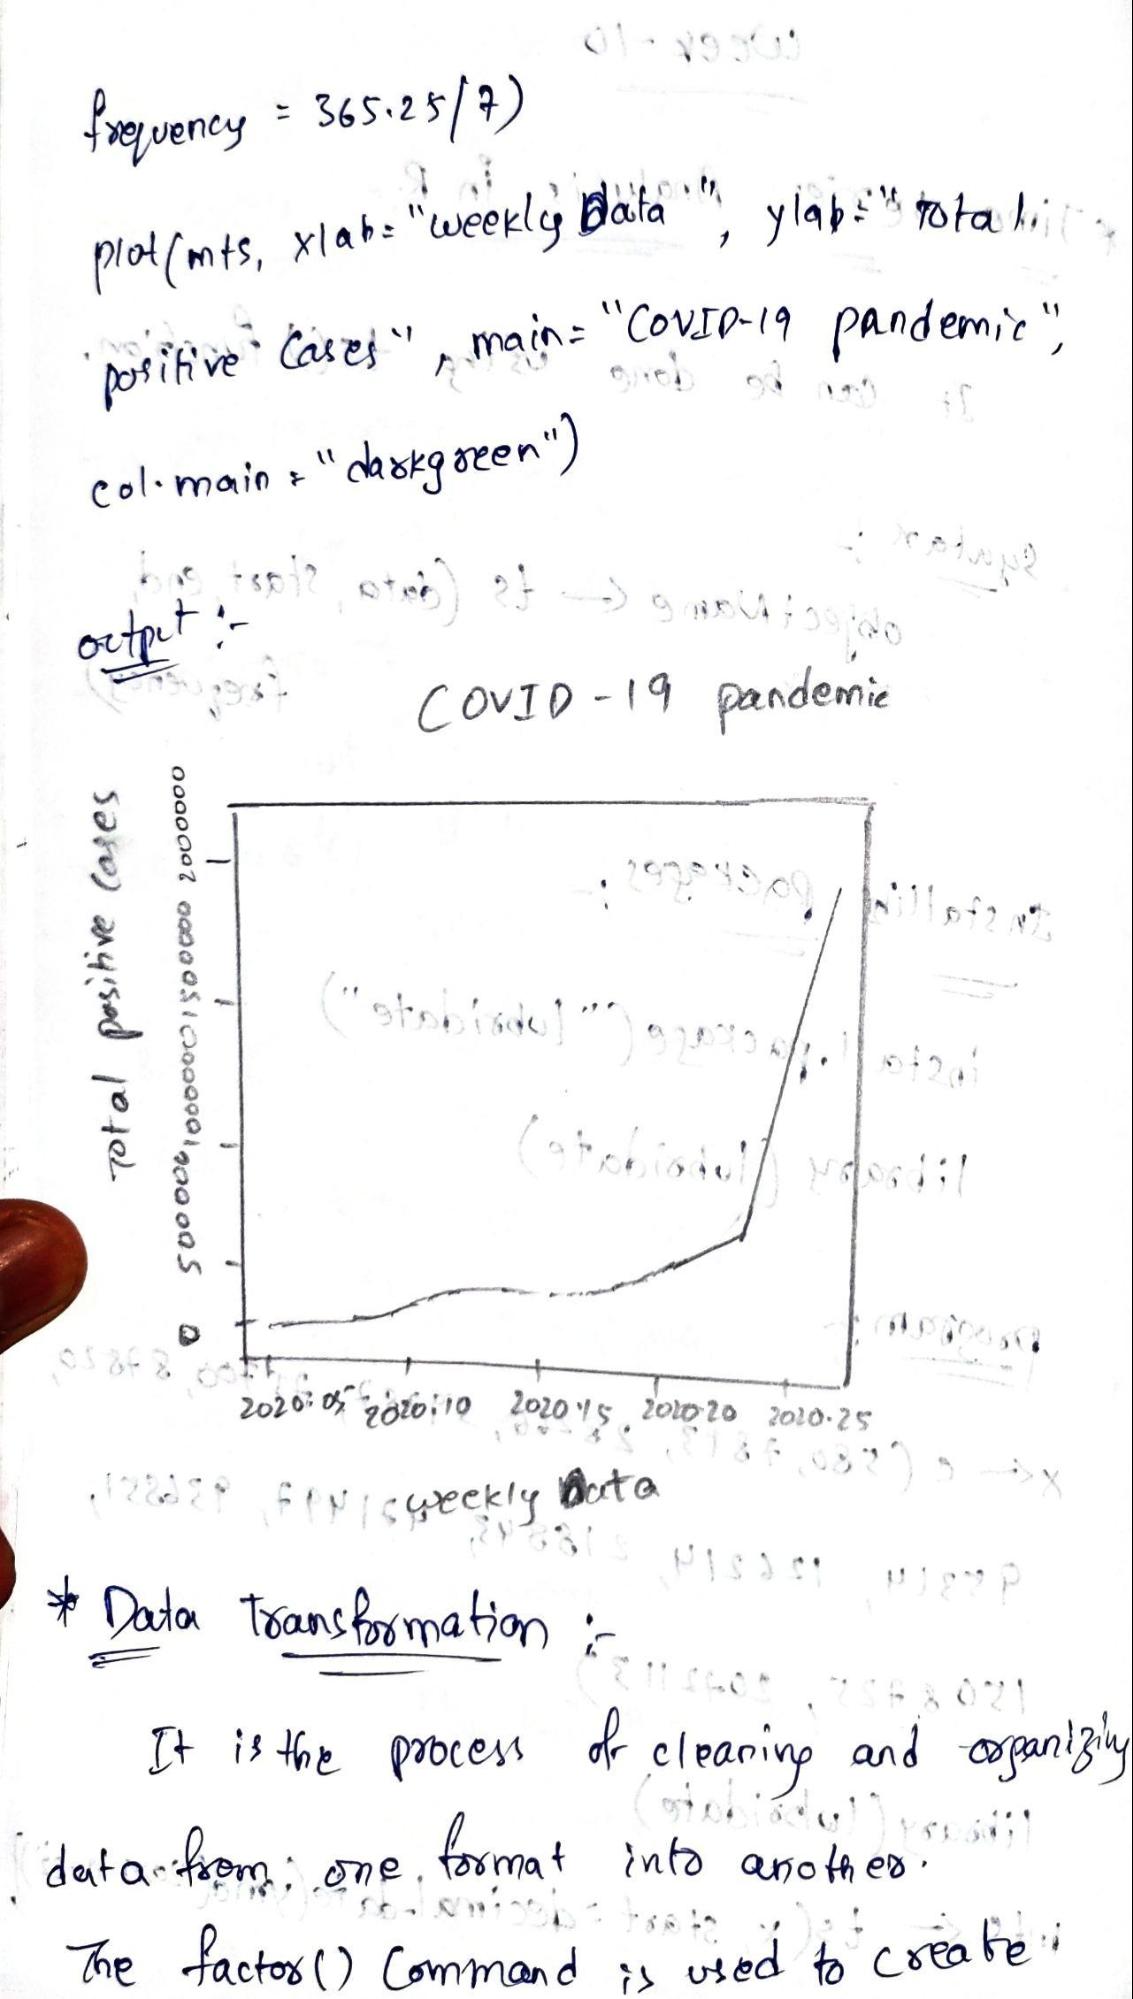 frequency = 365.25/7)
plot(mts, xlab="weekly Data", ylab="Total
positive Cases", main="COVID-19 pandemic",
col.main="darkgreen")
output :-
COVID-19 pandemic
Total positive Cases
0 500000 1000000 1500000 2000000
2020.05 2020.10 2020.15 2020.20 2020.25
weekly Data
* Data Transformation :-
It is the process of cleaning and organizing
data from one format into another.
The factor() Command is used to create